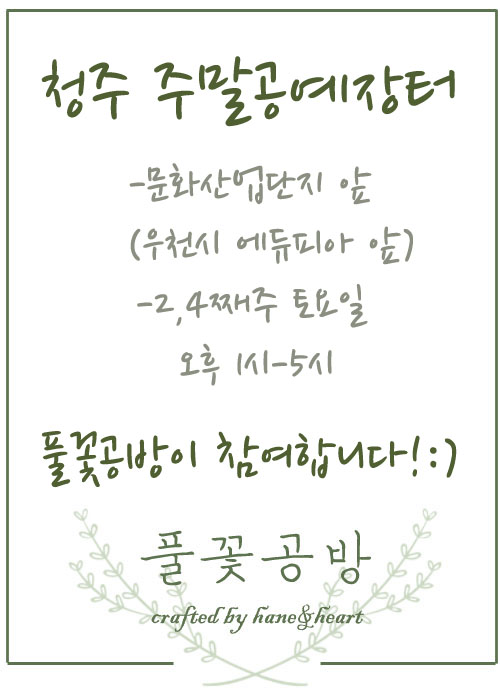 청주 주말공예장터
-문화산업단지 앞
(우천시 에듀피아 앞)
-2,4째주 토요일
오후 1시-5시
풀꽃공방이 참여합니다!:)
풀꽃공방
crafted by hane&heart